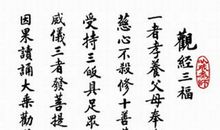 觀經三福
一者孝養父母奉
慈心不殺修十善
受持三皈具足眾
威儀三者發菩提
因果讀誦大乘勸